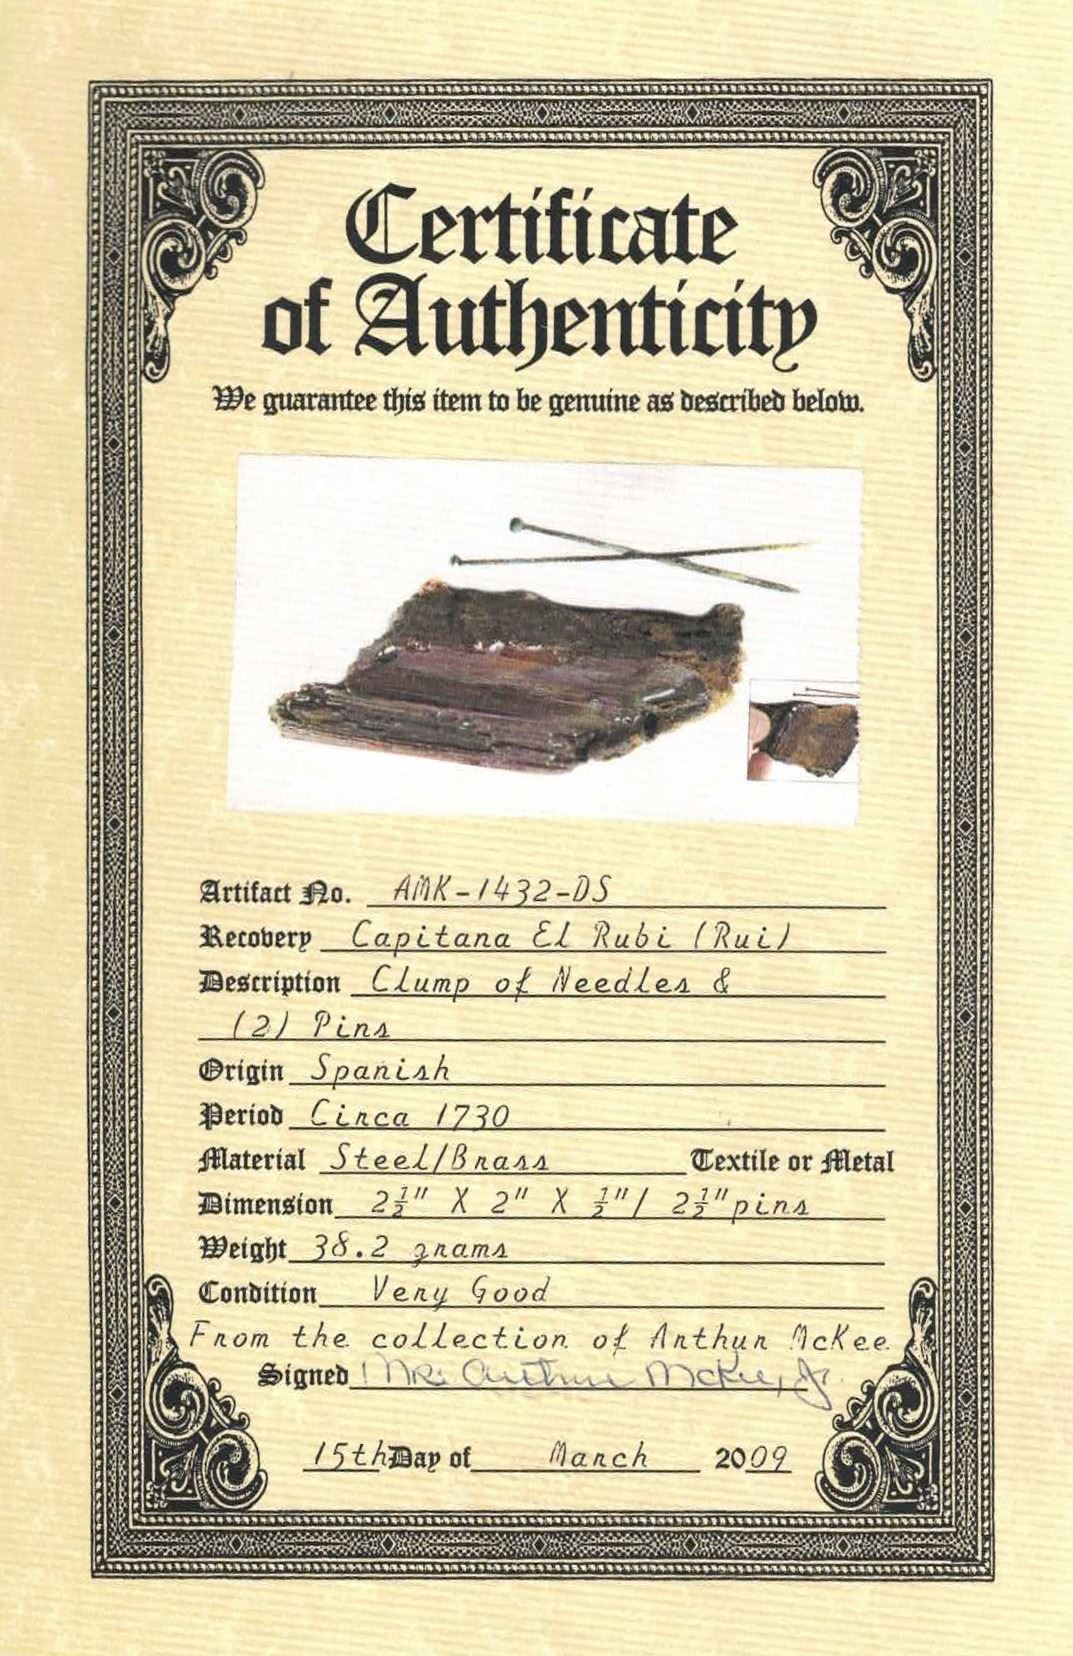 Certificate
of Authenticity
We guarantee this item to be genuine as described below.
Artifact No. AMK-1432-DS
Recovery Capitana El Rubi (Rui)
Description Clump of Needles &
(2) Pins
Origin Spanish
Period Circa 1730
Material Steel/Brass Textile or Metal
Dimension 2½" X 2" X ½"/ 2½" pins
Weight 38.2 grams
Condition Very Good
From the collection of Arthur McKee
Signed Mrs Arthur McKee, Jr.
15th Day of March 2009